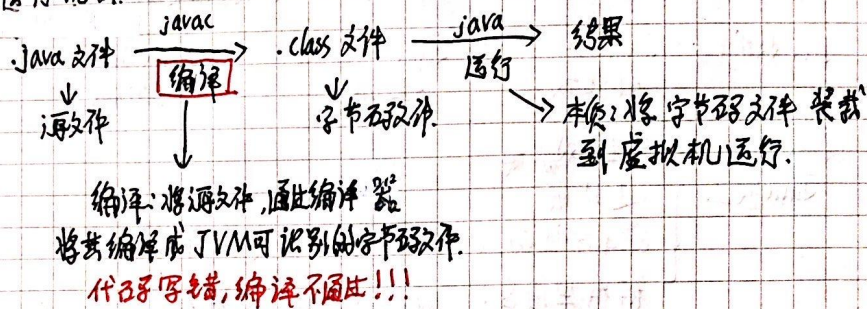 javac
java
.java文件
.class 文件
结果
编译
运行
源文件
字节码文件.
本质:将字节码文件 装载
到虚拟机运行.
编译:将源文件,通过编译器
将其编译成JVM可识别的字节码文件.
代码写错,编译不通过!!!